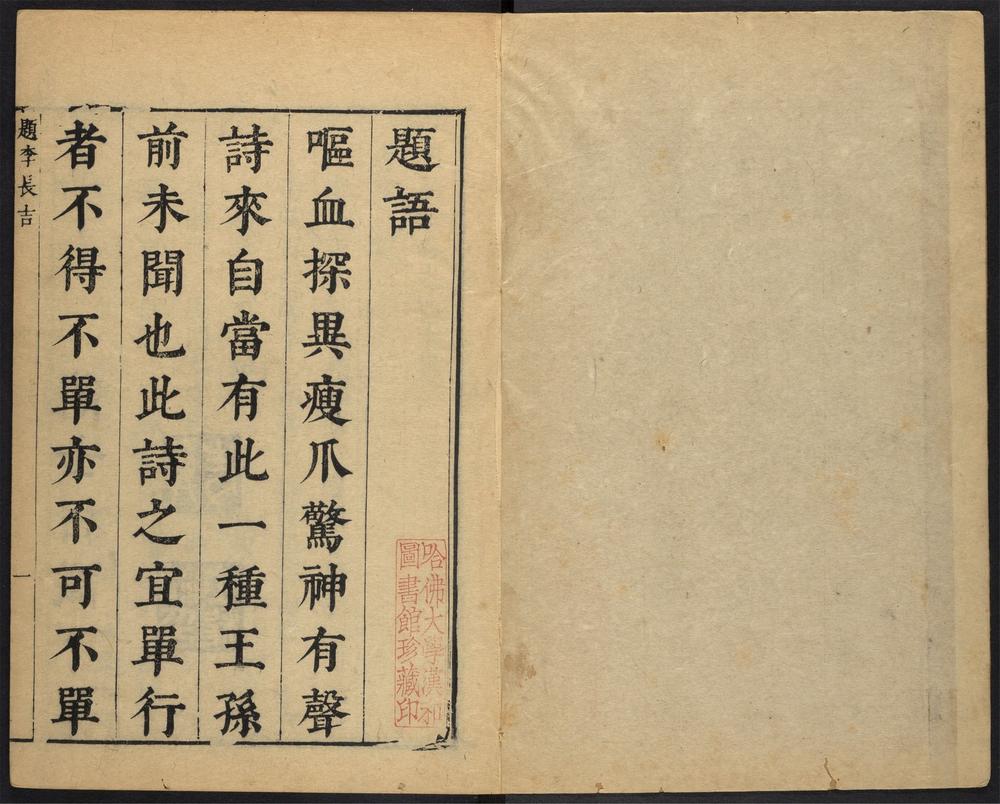 題語
嘔血探異瘦爪驚神有聲
詩來自當有此一種王孫
前未聞也此詩之宜單行
者不得不單亦不可不單
題李長吉
一
哈佛大學漢和
圖書館珍藏印